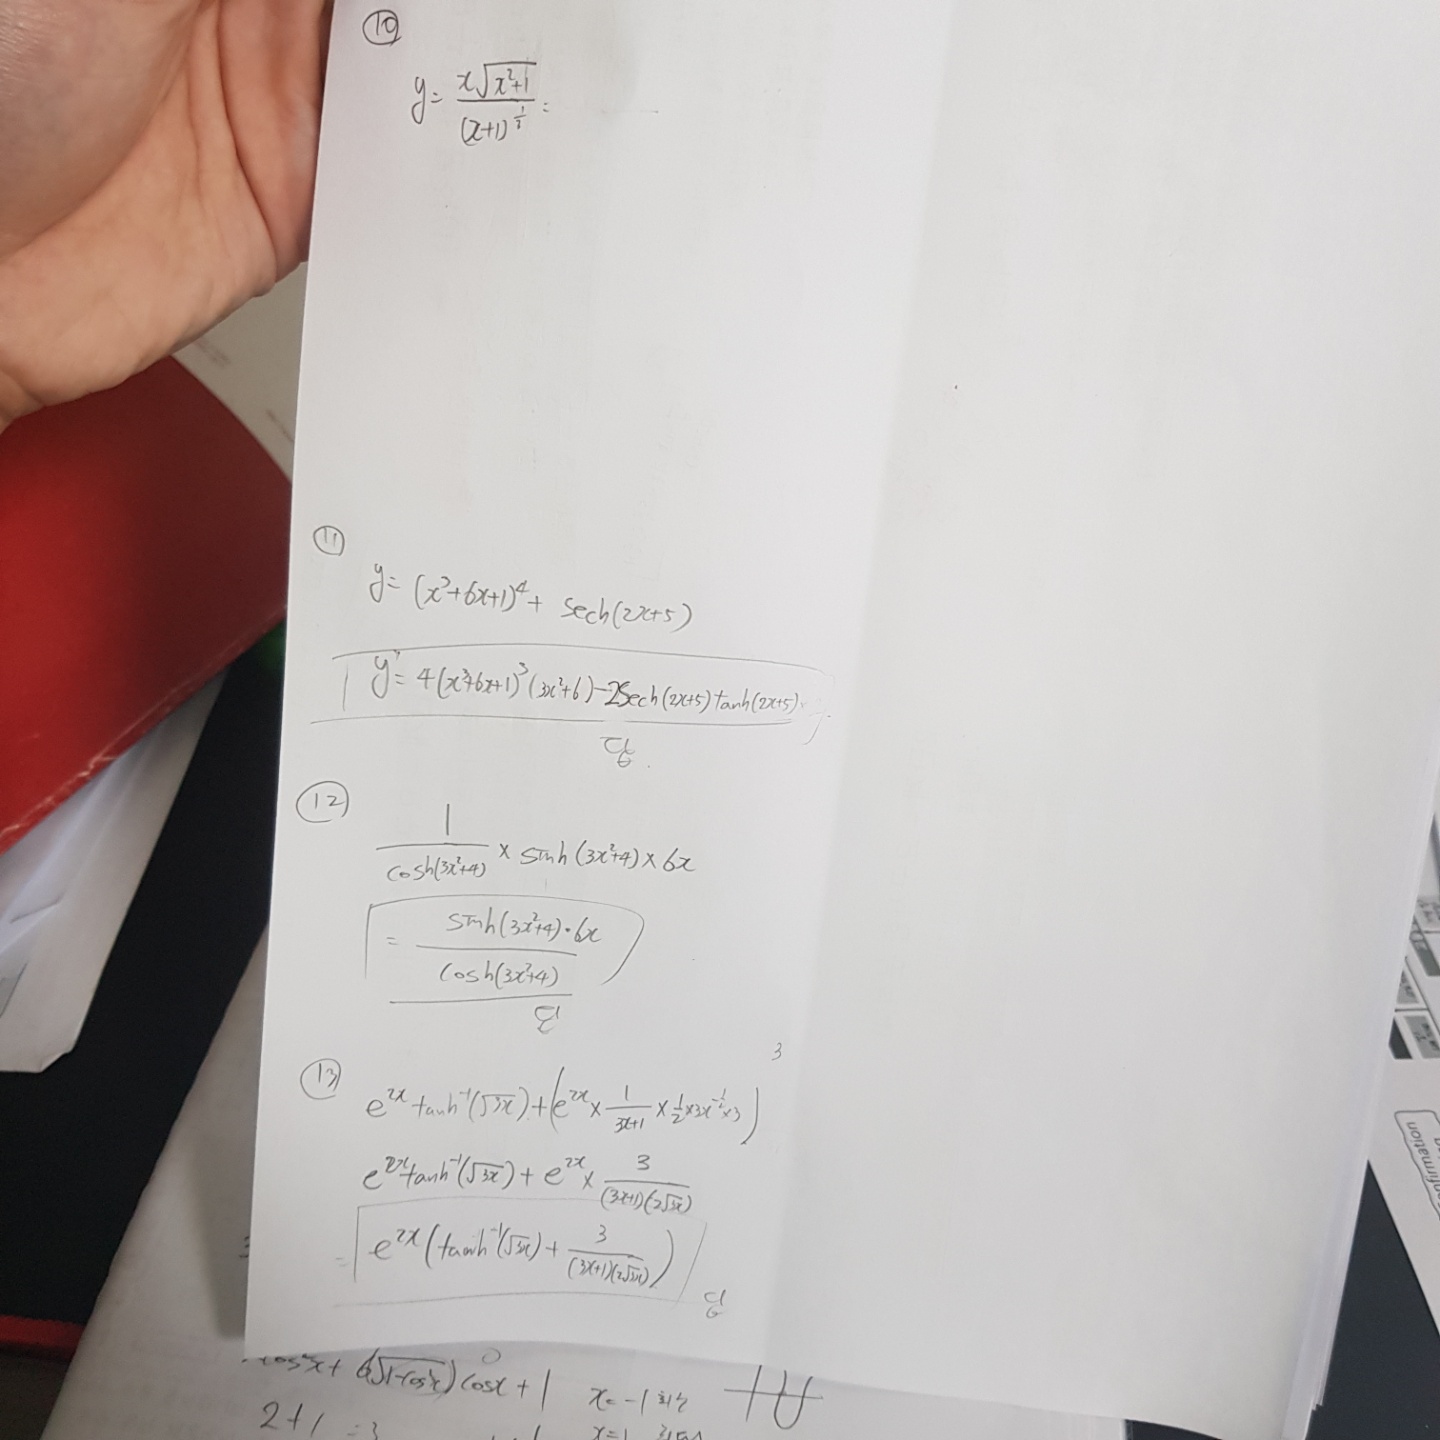 ⑩
y= x√(x²+1) / (x+1)^(1/3) =
⑪
y= (x³+6x+1)⁴+ sech(2x+5)
y'= 4(x³+6x+1)³(3x²+6)-2Sech(2x+5)tanh(2x+5)
답
⑫
1 / cosh(3x²+4) × sinh(3x²+4)×6x
= sinh(3x²+4)·6x / cosh(3x²+4)
답
3
⑬
e^(2x) tanh⁻¹(√3x)+(e^(2x)× 1/(3x+1) ×1/2×3x^(-1/2)×3)
e^(2x)tanh⁻¹(√3x)+e^(2x)× 3/((3x+1)(2√3x))
= e^(2x)(tanh⁻¹(√3x)+ 3/((3x+1)(2√3x)))
답
cosx+1 x=-1
2+1 =3 x=1
onfirmation